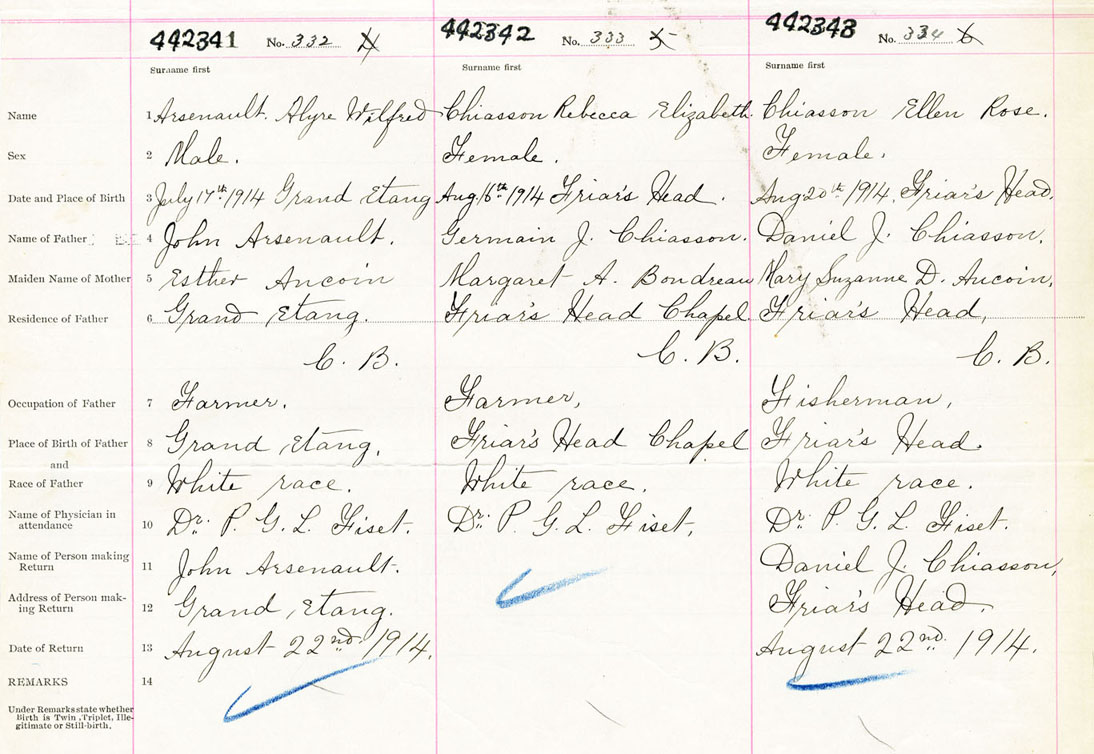 442341 No. 332 4 442342 No. 333 5 442343 No. 334 6
Surname first Surname first Surname first
Name 1 Arsenault. Alyre Wilfred Chiasson Rebecca Elizabeth. Chiasson Ellen Rose.
Sex 2 Male. Female. Female.
Date and Place of Birth 3 July 17th 1914 Grand Etang Aug. 16th 1914 Friar's Head. Aug 20th 1914. Friar's Head.
Name of Father 4 John Arsenault. Germain J. Chiasson. Daniel J. Chiasson.
Maiden Name of Mother 5 Esther Aucoin Margaret A. Bondreau Mary Suzanne D. Aucoin,
Residence of Father 6 Grand Etang. Friar's Head Chapel. Friar's Head,
C. B. C. B. C. B.
Occupation of Father 7 Farmer. Farmer, Fisherman,
Place of Birth of Father 8 Grand Etang, Friar's Head Chapel Friar's Head.
and
Race of Father 9 White race. White race. White race.
Name of Physician in
attendance 10 Dr. P. G. L. Fiset. Dr. P. G. L. Fiset, Dr. P. G. L. Fiset.
Name of Person making
Return 11 John Arsenault. Daniel J. Chiasson,
Address of Person mak-
ing Return 12 Grand Etang. Friar's Head.
Date of Return 13 August 22nd. 1914. August 22nd. 1914.
REMARKS 14
Under Remarks state whether
Birth is Twin, Triplet, Ille-
gitimate or Still-birth.